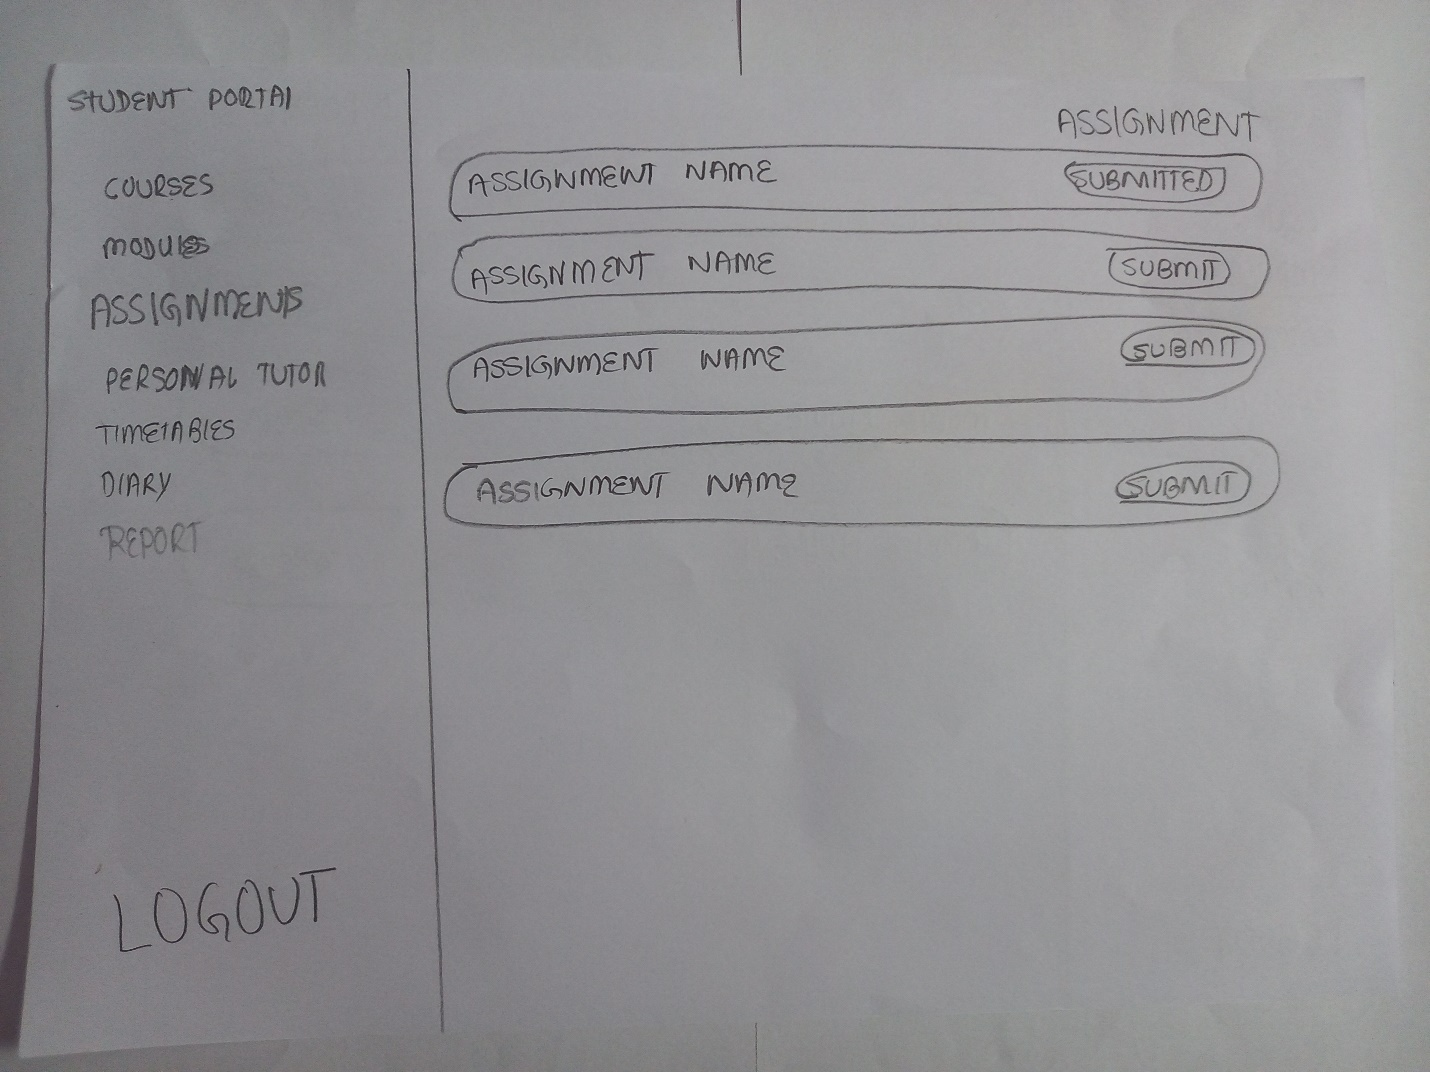 STUDENT PORTAl
COURSES
MODULES
ASSIGNMENTS
PERSONAL TUTOR
TIMETABLES
DIARY
REPORT
LOGOUT
ASSIGNMENT
ASSIGNMENT NAME SUBMITTED
ASSIGNMENT NAME SUBMIT
ASSIGNMENT NAME SUBMIT
ASSIGNMENT NAME SUBMIT